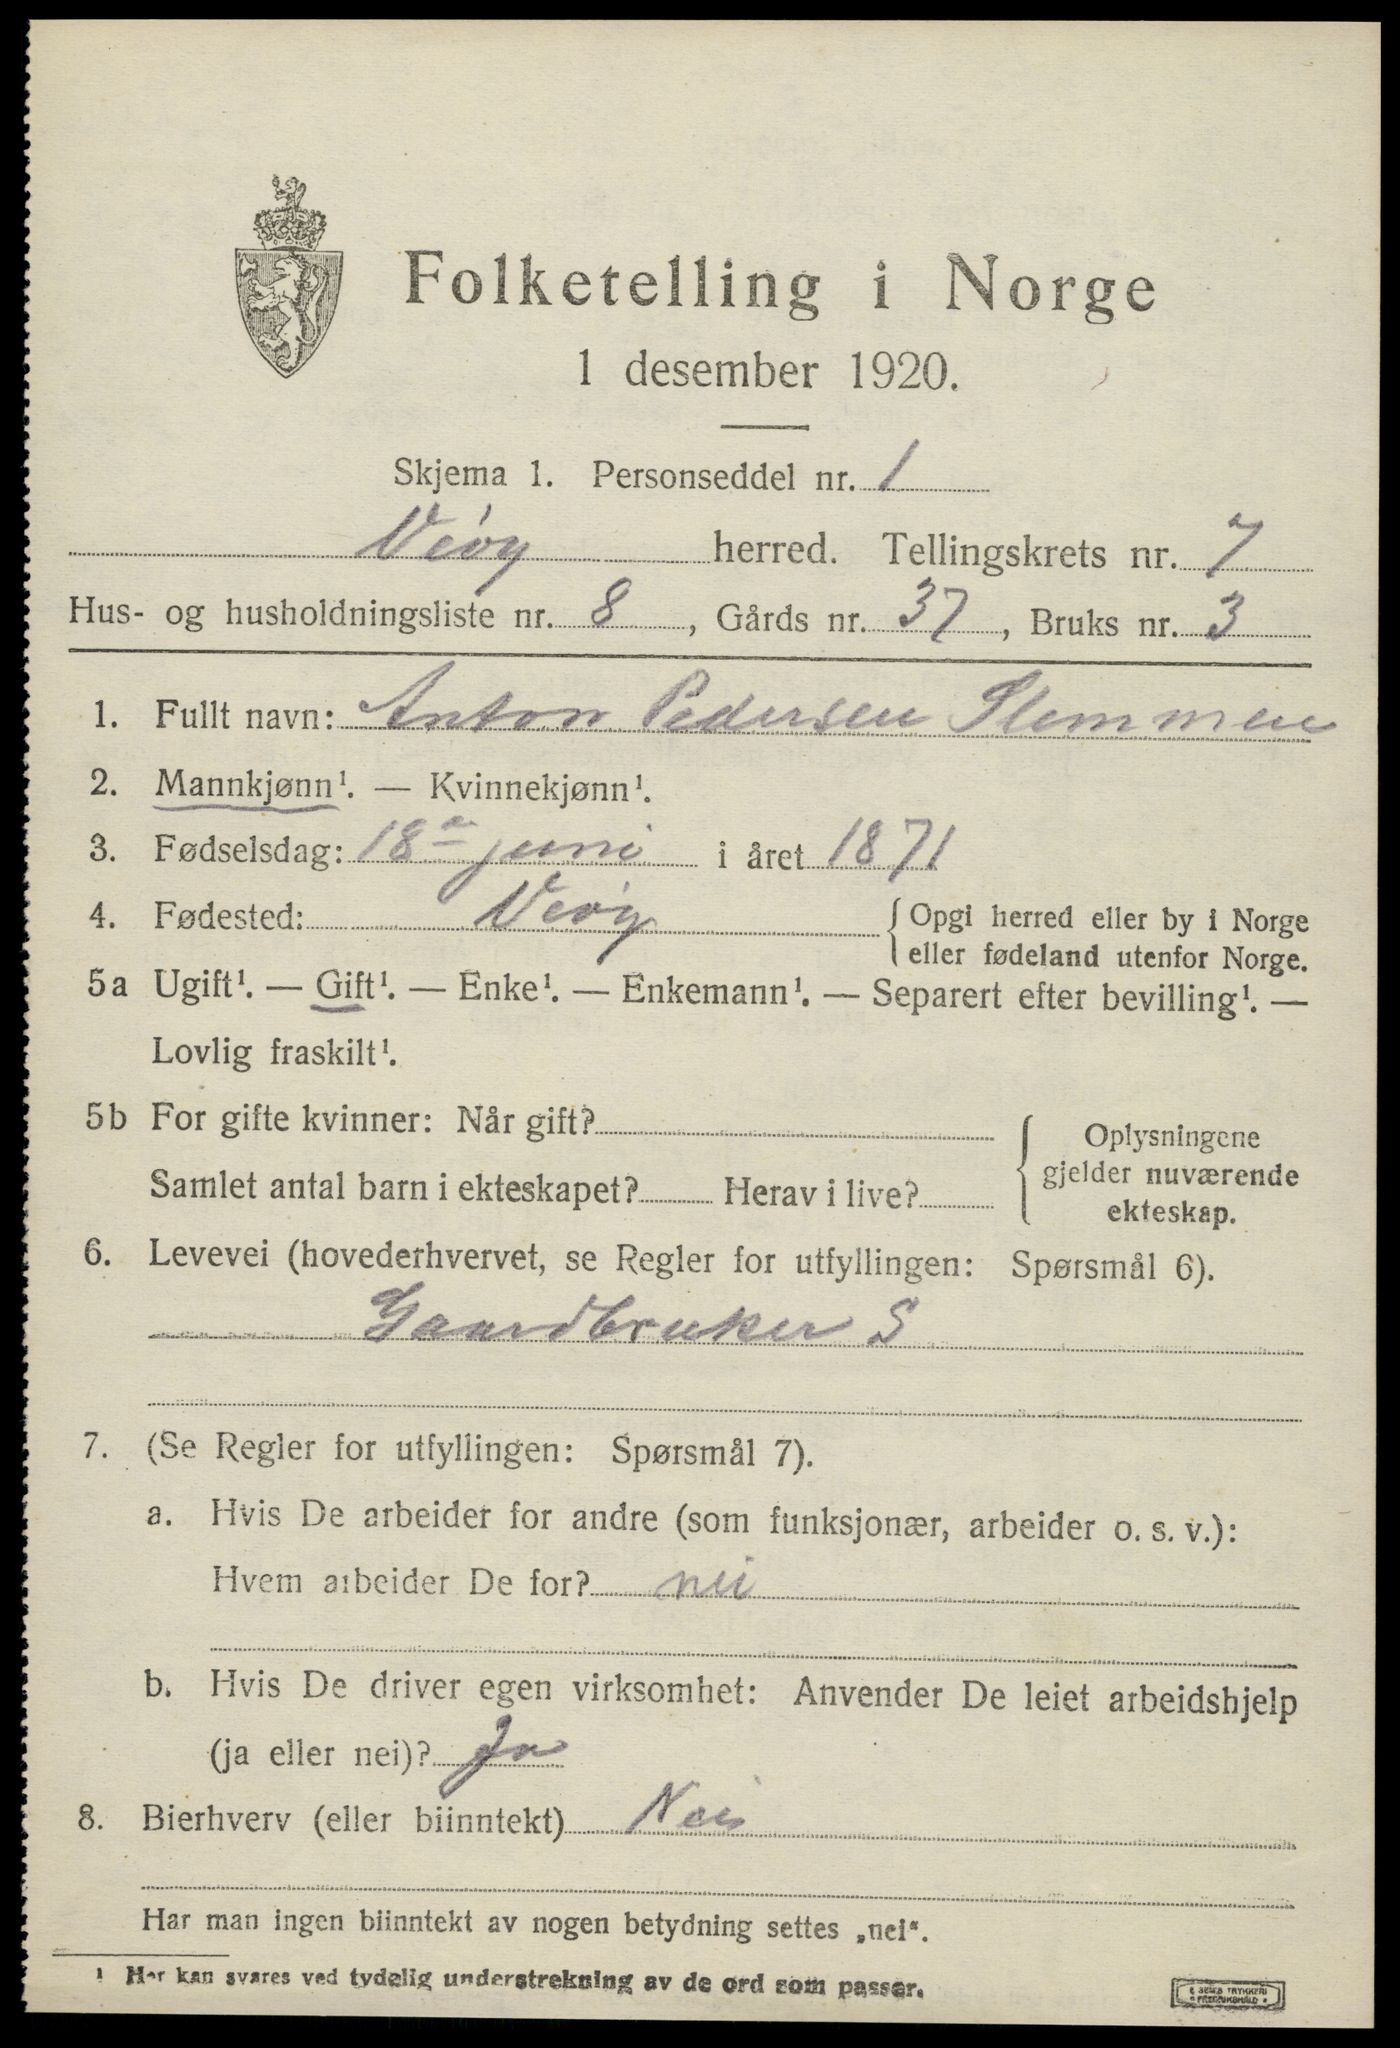 Folketelling i Norge
1 desember 1920.
Skjema 1. Personseddel nr. 1
Veöy herred. Tellingskrets nr. 7
Hus- og husholdningsliste nr. 8, Gårds nr. 37, Bruks nr. 3
1. Fullt navn: Anton Pedersen Flemmen
2. Mannkjønn¹. — Kvinnekjønn¹.
3. Fødselsdag: 18de juni i året 1871
4. Fødested: Veöy {Opgi herred eller by i Norge
eller fødeland utenfor Norge.
5a Ugift¹. — Gift¹. — Enke¹. — Enkemann¹. — Separert efter bevilling¹. —
Lovlig fraskilt¹.
5b For gifte kvinner: Når gift?
Samlet antal barn i ekteskapet? Herav i live?
{Oplysningene
gjelder nuværende
ekteskap.
6. Levevei (hovederhvervet, se Regler for utfyllingen: Spørsmål 6).
Gaardbruker S
7. (Se Regler for utfyllingen: Spørsmål 7).
a. Hvis De arbeider for andre (som funksjonær, arbeider o. s. v.):
Hvem arbeider De for? nei
b. Hvis De driver egen virksomhet: Anvender De leiet arbeidshjelp
(ja eller nei)? Ja
8. Bierhverv (eller biinntekt) Nei
Har man ingen biinntekt av nogen betydning settes „nei“.
¹ Her kan svares ved tydelig understrekning av de ord som passer.